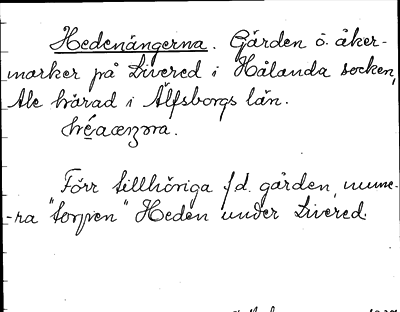 Hedenängerna. Gärden o. åker-
marker på Livered i Hålanda socken,
Ale härad i Älfsborgs län.
Förr tillhöriga f.d. gården, nume-
-ra "torpen" Heden under Livered.